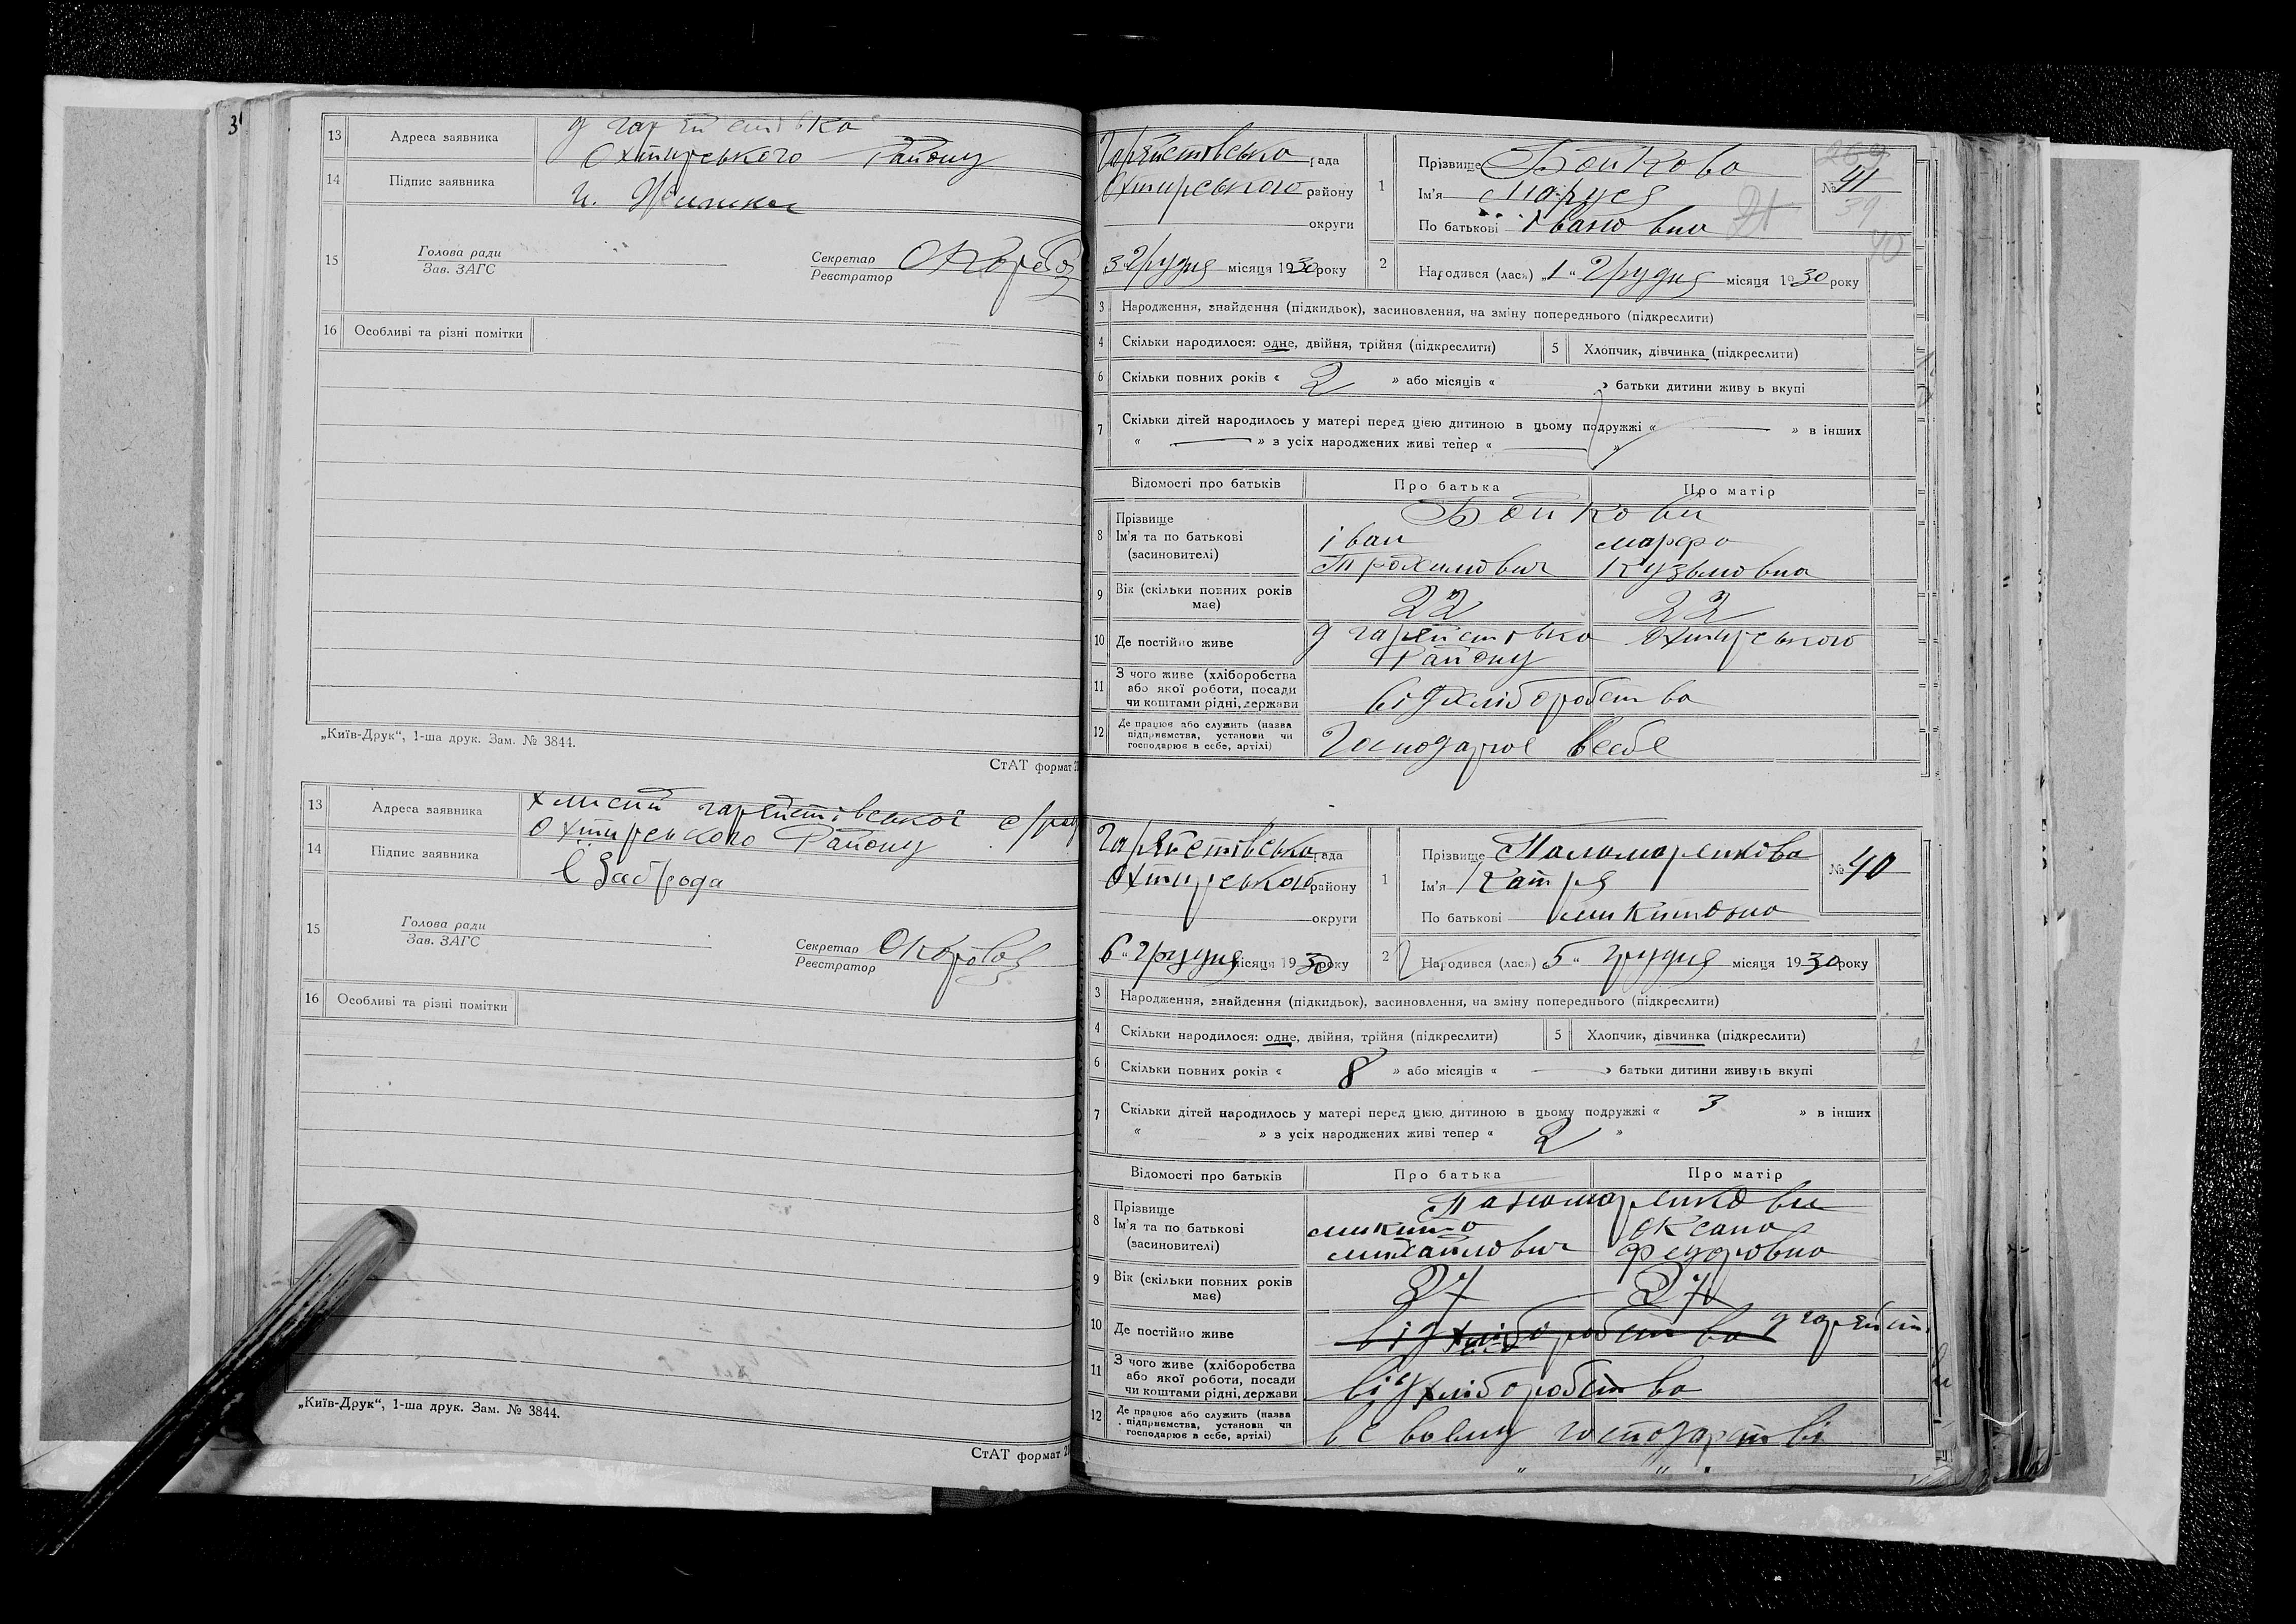 3
13 Адреса заявника
Охтирського Району
14 Підпис заявника
15 Голова ради
Зав. ЗАГС
Секретар
Реєстратор
16 Особливі та різні помітки
„Київ-Друк“, 1-ша друк. Зам. № 3844.
СтАТ формат
13 Адреса заявника
Охтирського Району
14 Підпис заявника
Є Заброда
15 Голова ради
Зав. ЗАГС
Секретар
Реєстратор
16 Особливі та різні помітки
„Київ-Друк“, 1-ша друк. Зам. № 3844.
СтАТ формат
рада
Охтирського району
округи
3 " Грудня місяця 1930 року
1 Прізвище Бойкова
Ім'я Маруся
По батькові Івановна
№ 41
39
40
2 Народився (лась) „1“ Грудня місяця 1930 року
3 Народження, знайдення (підкидьок), засиновлення, на зміну попереднього (підкреслити)
4 Скільки народилося: одне, двійня, трійня (підкреслити) 5 Хлопчик, дівчинка (підкреслити)
6 Скільки повних років « 2 » або місяців « » батьки дитини живу ь вкупі
7 Скільки дітей народилось у матері перед цією дитиною в цьому подружжі « — » в інших
« — » з усіх народжених живі тепер « — »
Відомості про батьків Про батька Про матір
8 Прізвище Бойкови
Ім'я та по батькові Іван марфа
(засиновителі) Трохимович Кузьмовна
9 Вік (скільки повних років має) 22 22
10 Де постійно живе Охтирського
Району
11 З чого живе (хліборобства
або якої роботи, посади
чи коштами рідні, держави від хліборобства
12 Де працює або служить (назва
підприємства, установи чи
господарює в себе, артілі) Господарює в себе
рада
Охтирського району
округи
6 " Грудня місяця 1930 року
1 Прізвище Паламаренкова
Ім'я Катря
По батькові микитовна
№ 40
2 Народився (лася) 5 " грудня місяця 1930 року
3 Народження, знайдення (підкидьок), засиновлення, на зміну попереднього (підкреслити)
4 Скільки народилося: одне, двійня, трійня (підкреслити) 5 Хлопчик, дівчинка (підкреслити)
6 Скільки повних років « 8 » або місяців « — » батьки дитини живуть вкупі
7 Скільки дітей народилось у матері перед цією дитиною в цьому подружжі « 3 » в інших
« » з усіх народжених живі тепер « 2 »
Відомості про батьків Про батька Про матір
8 Прізвище
Ім'я та по батькові микита Оксана
(засиновителі) михайлович Федоровна
9 Вік (скільки повних років має) 27 27
10 Де постійно живе від хліборобства
11 З чого живе (хліборобства
або якої роботи, посади
чи коштами рідні, держави від хліборобства
12 Де працює або служить (назва
підприємства, установи чи
господарює в себе, артілі) господарстві